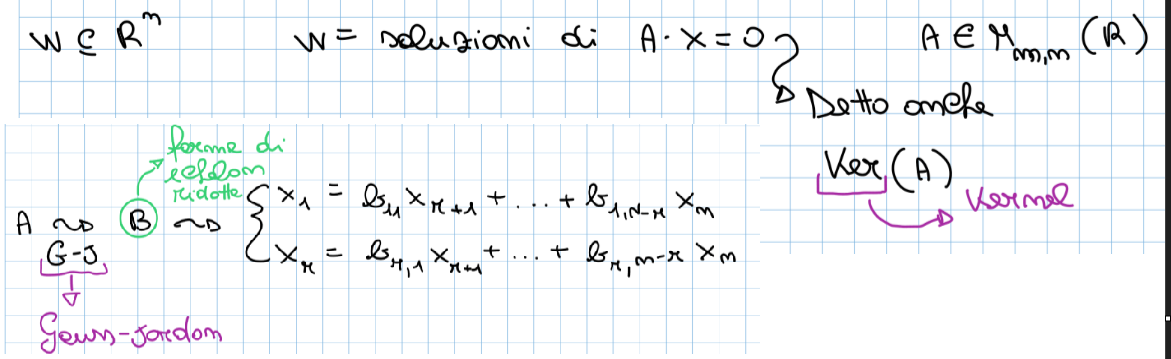 W ⊆ R^n W = soluzioni di A·X = 0 A ∈ M_{m,n} (R)
Detto anche
Ker (A)
Kernel
forma di
echelon
ridotte
A ~> B ~> { x_1 = b_{11} x_{r+1} + ... + b_{1,n-r} x_n
G-J x_r = b_{r,1} x_{r+1} + ... + b_{r,n-r} x_n
Gauss-Jordan